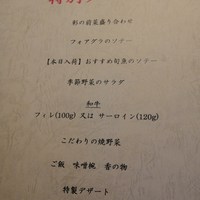 彩の前菜盛り合わせ
フォアグラのソテー
【本日入荷】おすすめ旬魚のソテー
季節野菜のサラダ
和牛
フィレ(100g) 又は サーロイン(120g)
こだわりの焼野菜
ご飯 味噌椀 香の物
特製デザート